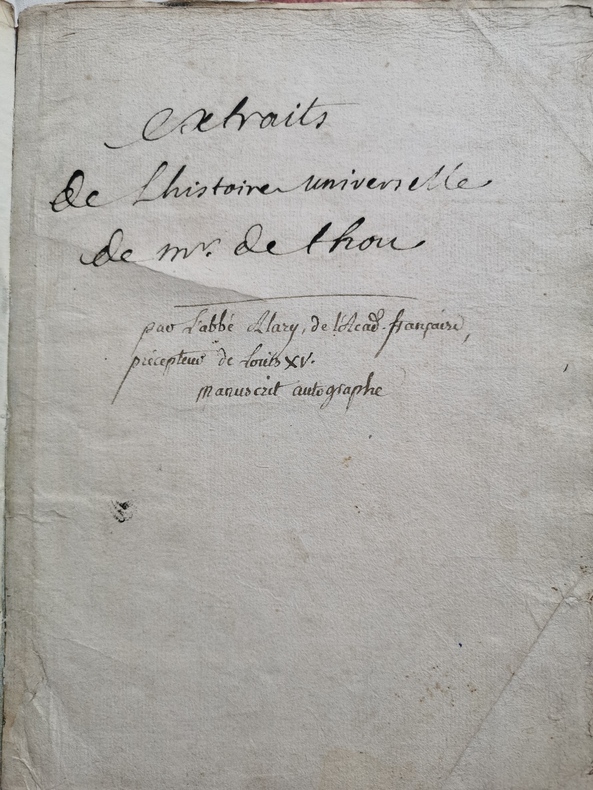 extraits
de Lhistoire universelle
de mr. de thou
par L'abbé Alary, de l'Acad. française,
précepteur de Louis XV.
manuscrit autographe